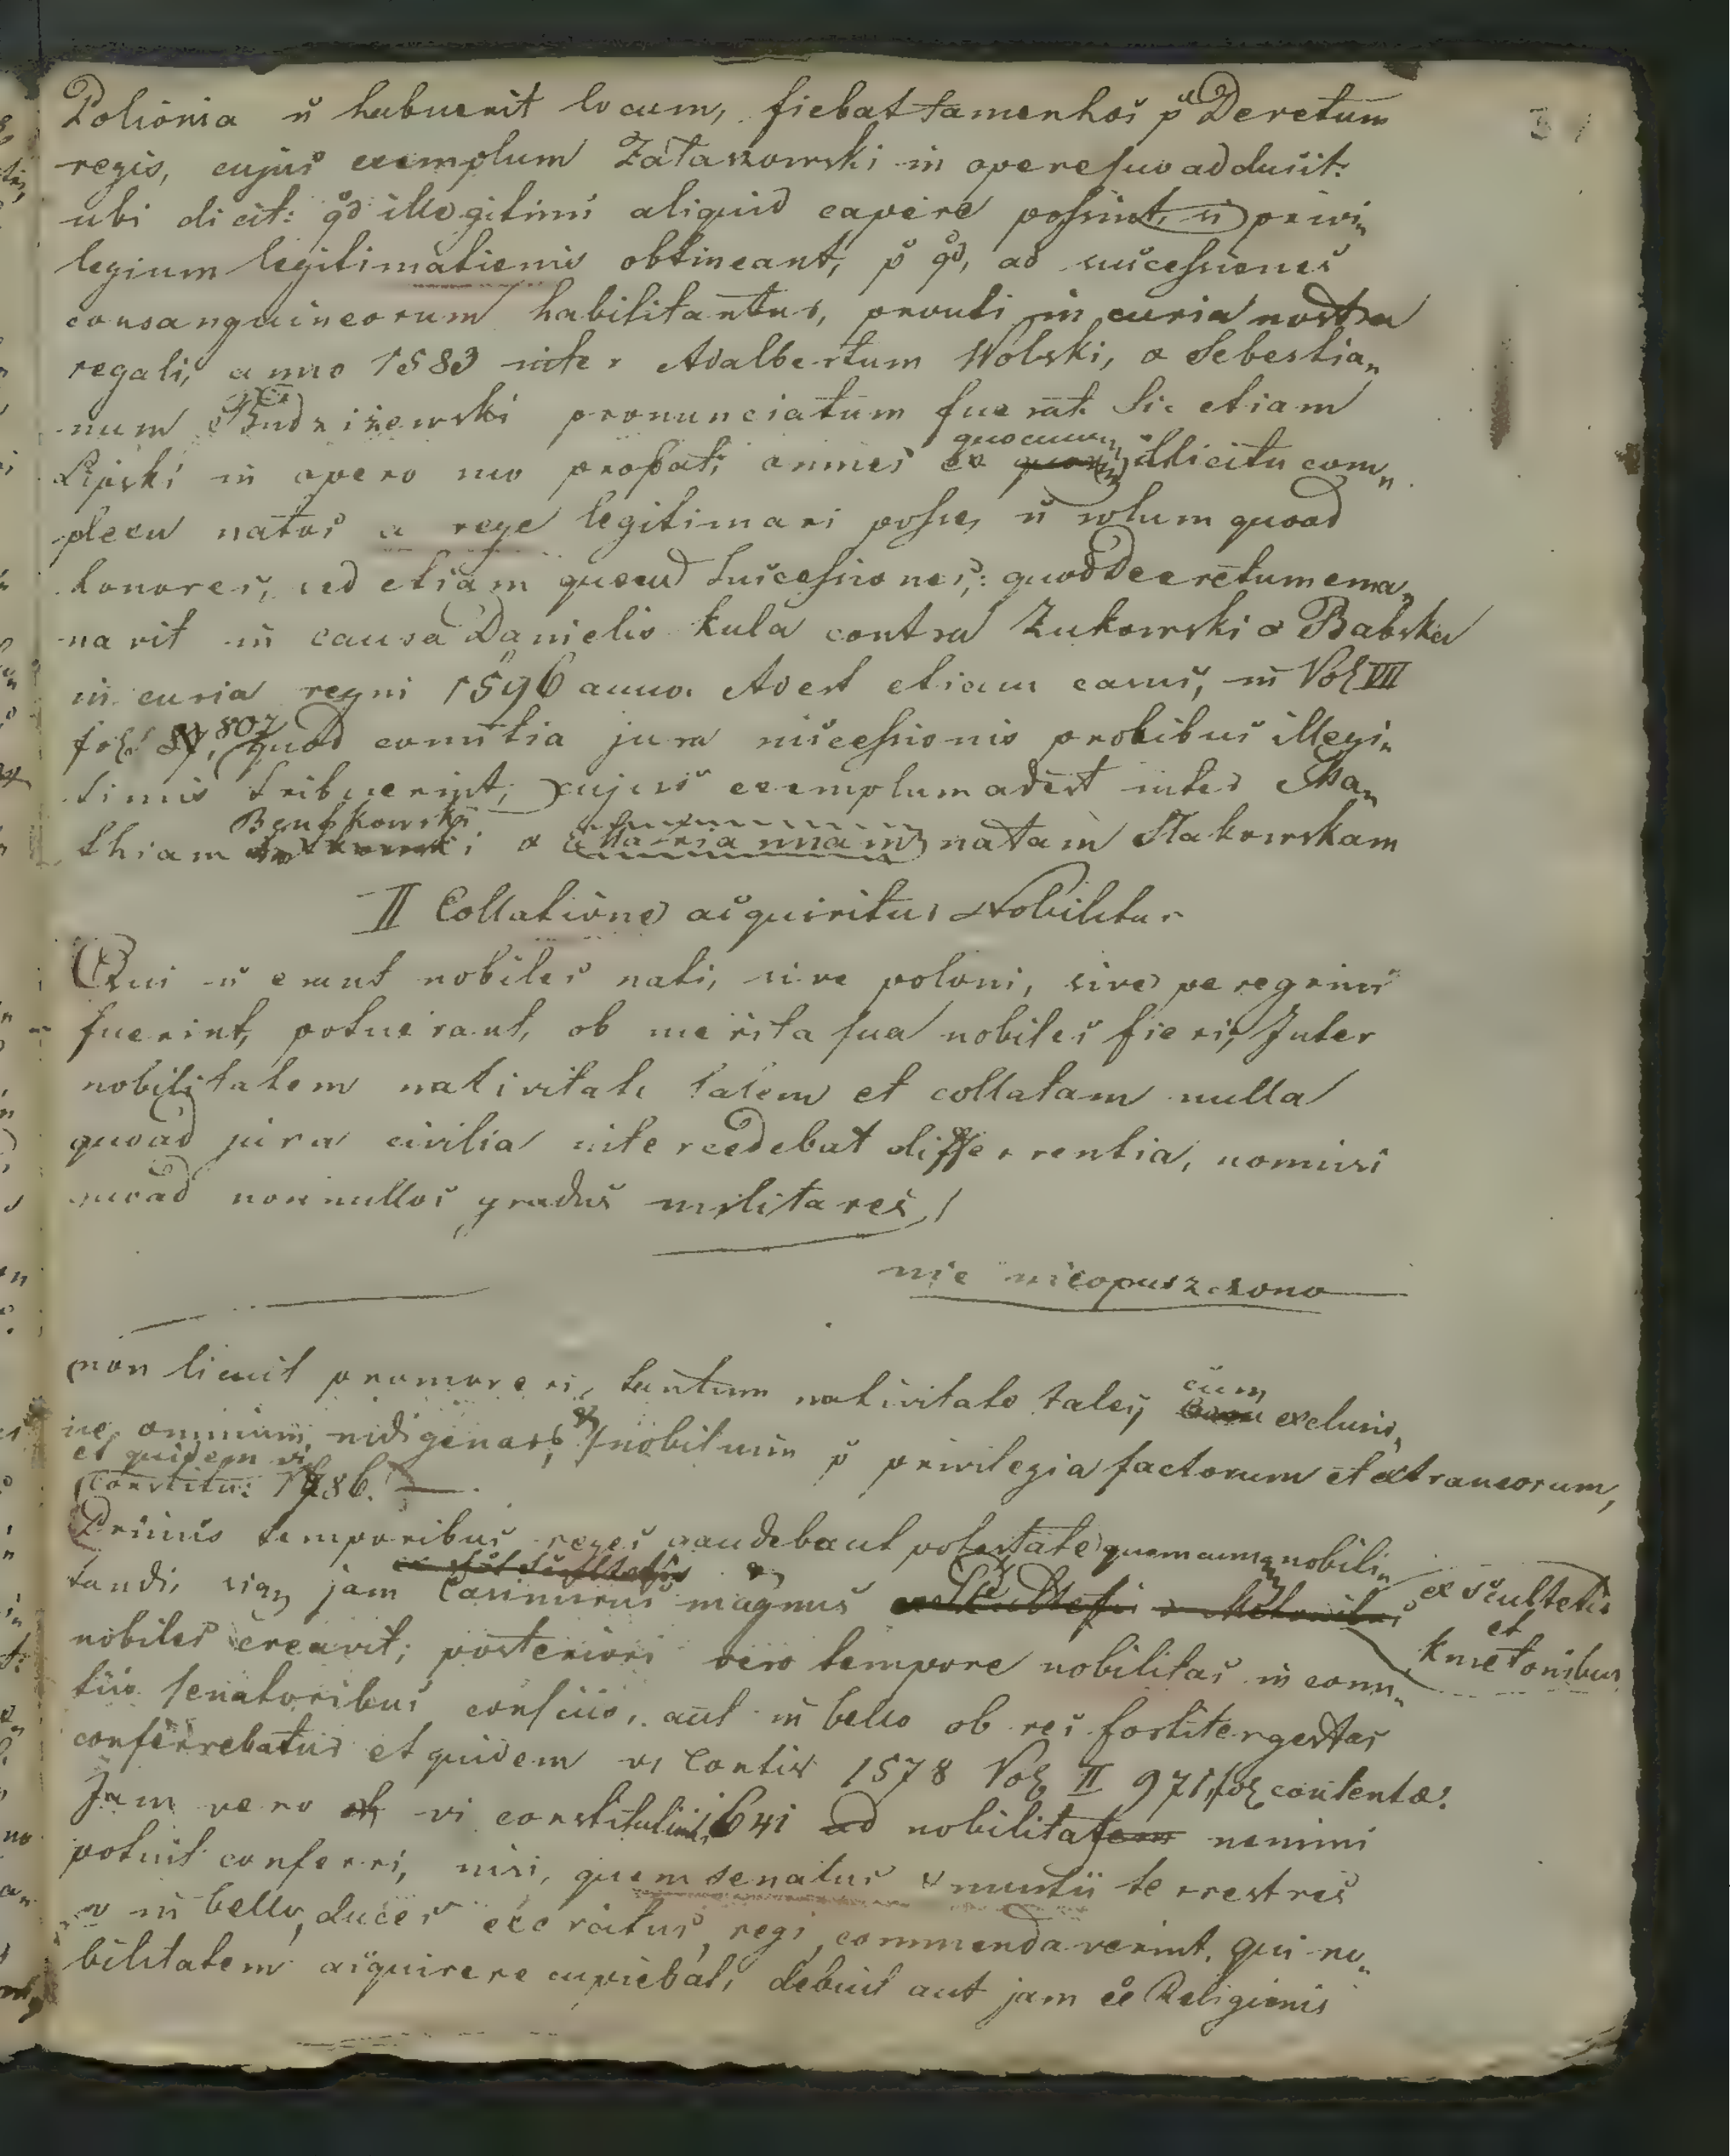 Polionia n̄ habuerit locum, fiebat tamen hoc p̄ Decretum
regis, cujus exemplum Zalaszowski in opere suo adducit:
ubi dicit: qd illegitimi aliquid capere possint, si privi„
legium legitimationis obtineant, p̄ qd, ad successiones
consanguineorum habilitantur, prouti in curia nostra
regali, anno 1583 inter Adalbertum Wolski, & Sebestia„
num Budziszewski pronunciatum fuerat. Sic etiam
Lipski in opere suo probat, omnes ex quocunq illicitu com„
plexu natos a rege legitimari posse, n̄ solum quoad
honores, sed etiam quoad Successiones: quod Decretum ema„
narit in causa Danielis Kula contra Zukowski & Babska
in curia regni 1596 anno. Adest etiam casus, in Vol VII
fol: 807 quod comitia jura successionis prolibus illegi„
timis tribuerint, cujus exemplum adest inter Ma„
thiam Benkowski & Mariannam natam Makowskam
II Collatione acquiritur Nobilitas
Qui n̄ erant nobiles nati, sive poloni, sive peregrini
fuerint, potuerant, ob merita sua nobiles fieri, Inter
nobilitatem nativitate talem et collatam nulla
quoad jura civilia intercedebat differrentia, nonnisi
quoad nonnullos gradus militares,
nic nieopuszczono
non licuit promoveri, tantum nativitate tales, cum exclusio„
ne omnium indigenar, & nobilium p̄ privilegia factorum et extraneorum,
et quidem vi
Constitu: 1786.
Primis temporibus reges gaudebant potestate quemcumq nobili„
tandi, siq jam Casimirus magnus ex scultetis
et
kmetonibus
nobiles creavit; posteriori vero tempore nobilitas in comi„
tiis senatoribus consciis, aut in bello ob res fortiter gestas
conferrebatur et quidem vi Contis 1578 Vol II 971, fol contenta.
Jam vero vi constitutionis 1641 nobilitas nemini
potuit conferri, nisi, quem senatus & nuntii terrestres
in bello, duces exercitus, regi, commendaverint. qui no„
bilitatem acquirere cupiebat, debuit aut jam ee Religionis